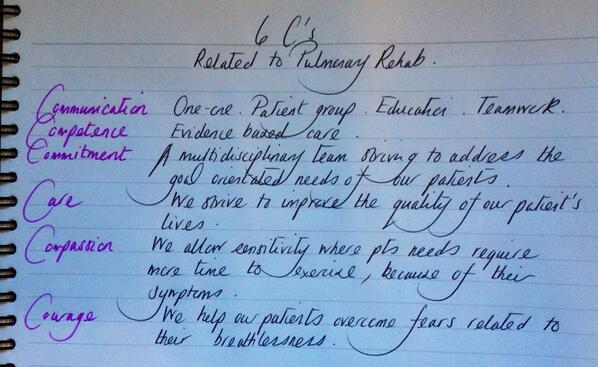 6 C's
Related to Pulmonary Rehab.
Communication One-one. Patient group. Education. Teamwork.
Competence Evidence based care.
Commitment A multidisciplinary team striving to address the
goal orientated needs of our patients.
Care We strive to improve the quality of our patient's
lives.
Compassion We allow sensitivity where pts needs require
more time to exercise, because of their
symptoms.
Courage We help our patients overcome fears related to
their breathlessness.